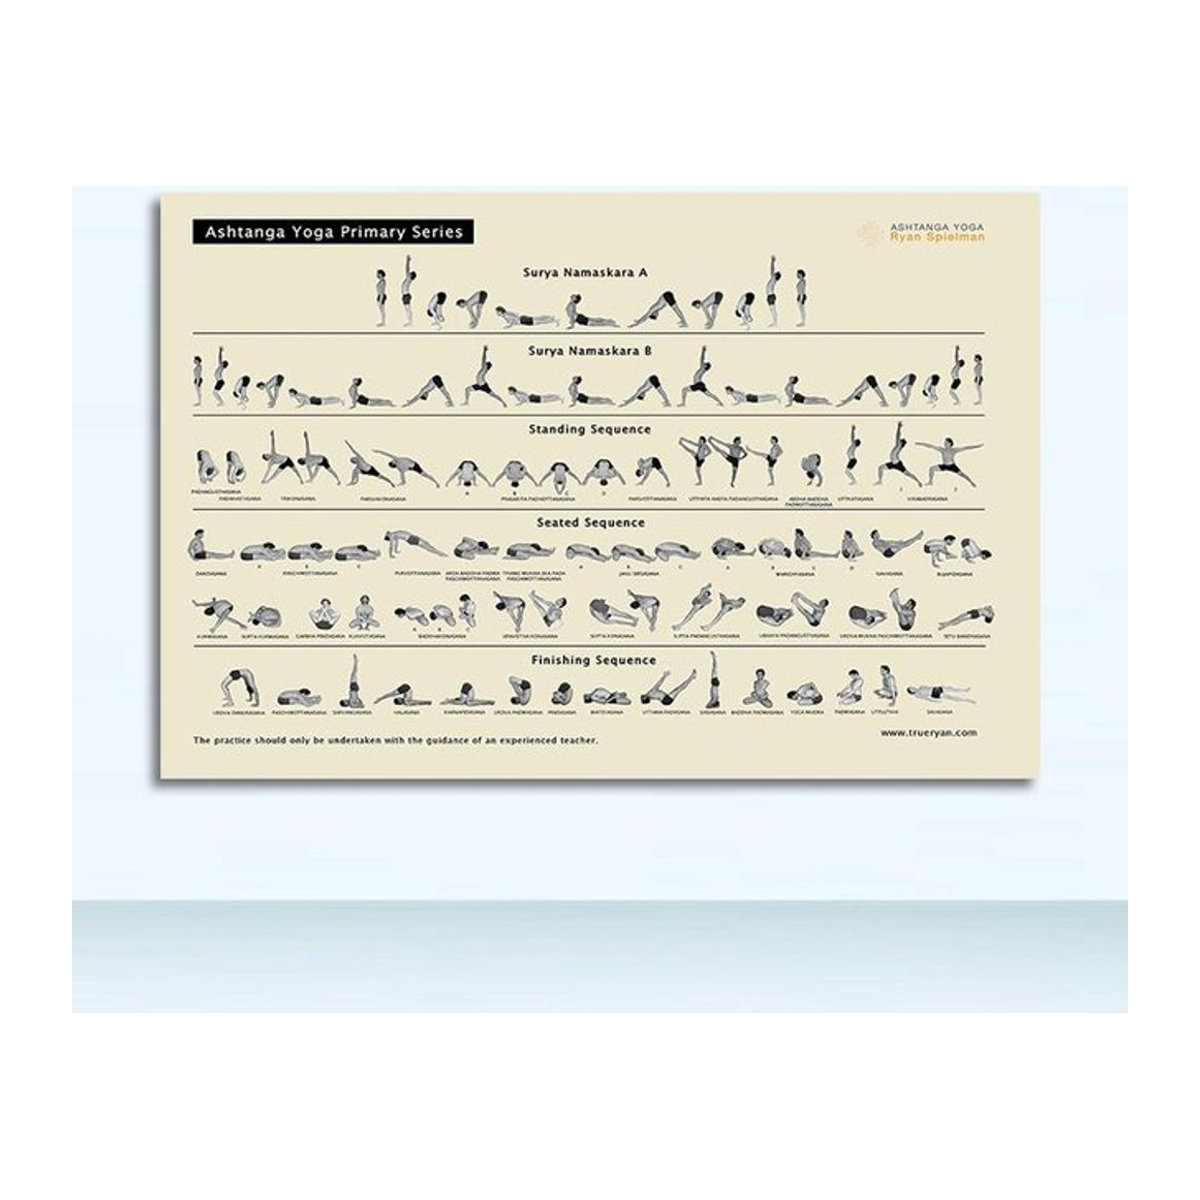 Ashtanga Yoga Primary Series
ASHTANGA YOGA
Ryan Spielman
Surya Namaskara A
Surya Namaskara B
Standing Sequence
PADANGUSTHASANA
PADAHASTASANA
TRIKONASANA
PARSVAKONASANA
A B C D
PRASARITA PADHOTTANASANA
PARSVOTTANASANA
UTTHITA HASTA PADANGUSTHASANA
ARDHA BADDHA
PADMOTTANASANA
UTKATASANA
VIRABHADRASANA
Seated Sequence
DANDASANA
A B C
PASCHIMOTTANASANA
PURVOTTANASANA
ARDA BADDHA PADMA
PASCHIMOTTANASANA
TRIANG MUKHA EKA PADA
PASCHIMOTTANASANA
A B C
JANU SIRSASANA
A B C D
MARICHYASANA
NAVASANA
BUJAPIDASANA
KURMASANA
SUPTA KURMASANA
GARBHA PINDASANA
KUKKUTASANA
A B C
BADDHAKONASANA
UPAVISTHA KONASANA
SUPTA KONASANA
SUPTA PADANGUSTHASANA
UBHAYA PADANGUSTHASANA
URDVA MUKHA PASCHIMOTTANASANA
SETU BANDHASANA
Finishing Sequence
URDVA DHANURASANA
PASCHIMOTTANASANA
SARVANGASANA
HALASANA
KARNAPIDASANA
URDVA PADMASANA
PINDASANA
MATSYASANA
UTTANA PADASANA
SIRSASANA
BADDHA PADMASANA
YOGA MUDRA
PADMASANA
UTPLUTHIH
SAVASANA
The practice should only be undertaken with the guidance of an experienced teacher.
www.trueryan.com